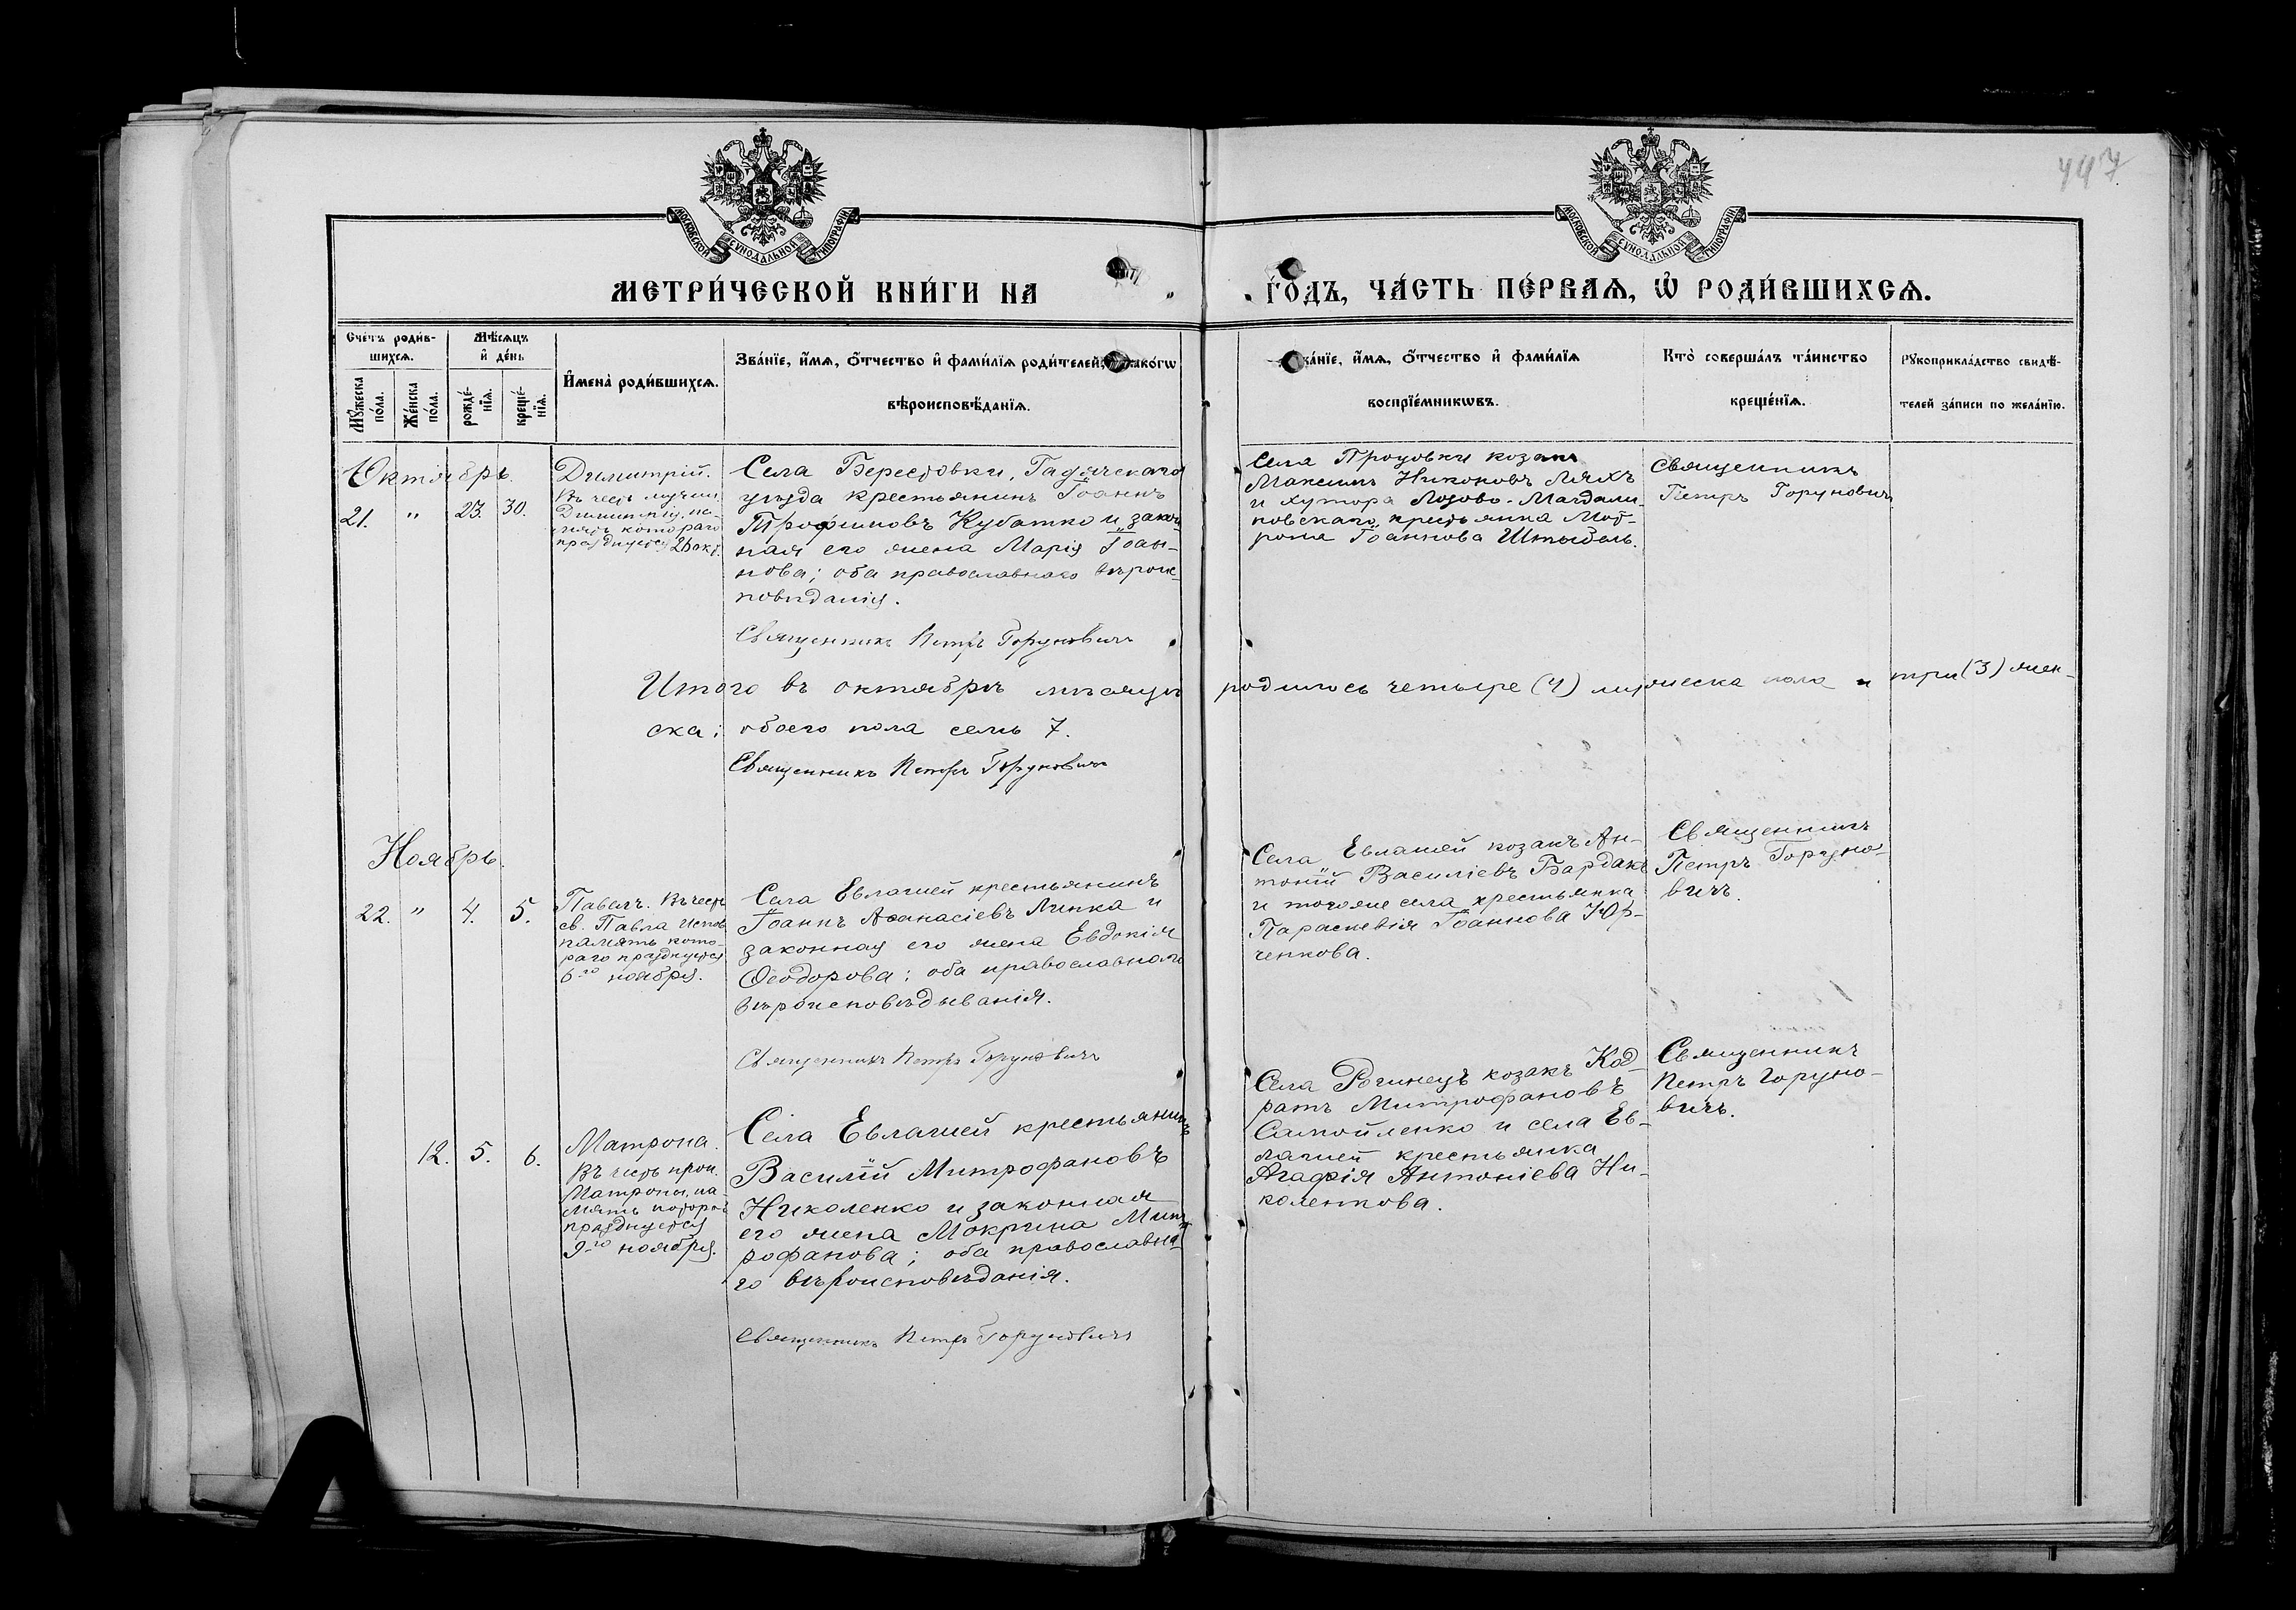 447
МОСКОВСКОЙ СѴНОДАЛЬНОЙ ТИПОГРАФІИ
МОСКОВСКОЙ СѴНОДАЛЬНОЙ ТИПОГРАФІИ
МЕТРИ́ЧЕСКОЙ КНИ́ГИ НА
ГО́ДЪ, ЧА́СТЬ ПЕ́РВАѦ, Ѡ҆ РОДИ́ВШИХСѦ.
Сче́тъ роди́в-
шихсѧ.
Мѣ́сѧцъ
и҆ де́нь
Мꙋ́жеска
по́ла.
Же́нска
по́ла.
рожде́-
нїѧ.
креще́-
нїѧ.
И҆мена̀ роди́вшихсѧ.
Зва́нїе, и҆́мѧ, ѻ҆́тчество и҆ фамѝлїѧ роди́телей, како́гѡ
вѣроисповѣ́данїѧ.
ва́нїе, и҆́мѧ, ѻ҆́тчество и҆ фамѝлїѧ
воспрїе́мникѡвъ.
Кто̀ соверша́лъ та́инство
креще́нїѧ.
Рꙋкоприкла́дство свидѣ́-
телей за́писи по жела́нїю.
Октябрь.
21. " 23. 30.
Димитрій.
Въ честь мучен.
Димитрія, па-
мять котораго
празднуется 26 окт.
Села Берестовки, Гадячскаго
уѣзда крестьянинъ Іоаннъ
Трофимовъ Кубатко и закон-
ная его жена Марія Іоан-
нова; оба православнаго вѣроис-
повѣданія.
Священникъ Петръ Горуновичъ
Села Процовки козакъ
Максимъ Никоновъ Ляхъ
и хутора Лозово-Магдали-
новскаго крестьянка Мот-
рона Іоаннова Штыдель.
Священникъ
Петръ Горуновичъ
Итого въ октябрѣ мѣсяцѣ родилось четыре (4) мужеска пола и три (3) жен-
ска; обоего пола семь 7.
Священникъ Петръ Горуновичъ
Ноябрь.
22. " 4. 5.
Павелъ. Въ честь
св. Павла испов.
память кото-
раго празднуется
6-го ноября.
Села Евлашей крестьянинъ
Іоаннъ Аѳанасіевъ Линка и
законная его жена Евдокія
Ѳеодорова; оба православнаго
вѣроисповѣдыванія.
Священникъ Петръ Горуновичъ
Села Евлашей козакъ Ан-
тоній Василіевъ Бардакъ
и тогоже села крестьянка
Параскевія Іоаннова Юр-
ченкова.
Священникъ
Петръ Горуно-
вичъ.
12. 5. 6.
Матрона.
Въ честь прп.
Матроны, па-
мять которой
празднуется
9-го ноября.
Села Евлашей крестьянинъ
Василій Митрофановъ
Николенко и законная
его жена Мокрина Мит-
рофанова; оба православна-
го вѣроисповѣданія.
Священникъ Петръ Горуновичъ
Села Рогинецъ козакъ Код-
ратъ Митрофановъ
Самойленко и села Ев-
лашей крестьянка
Агафія Антоніева Ни-
коленкова.
Священникъ
Петръ Горуно-
вичъ.